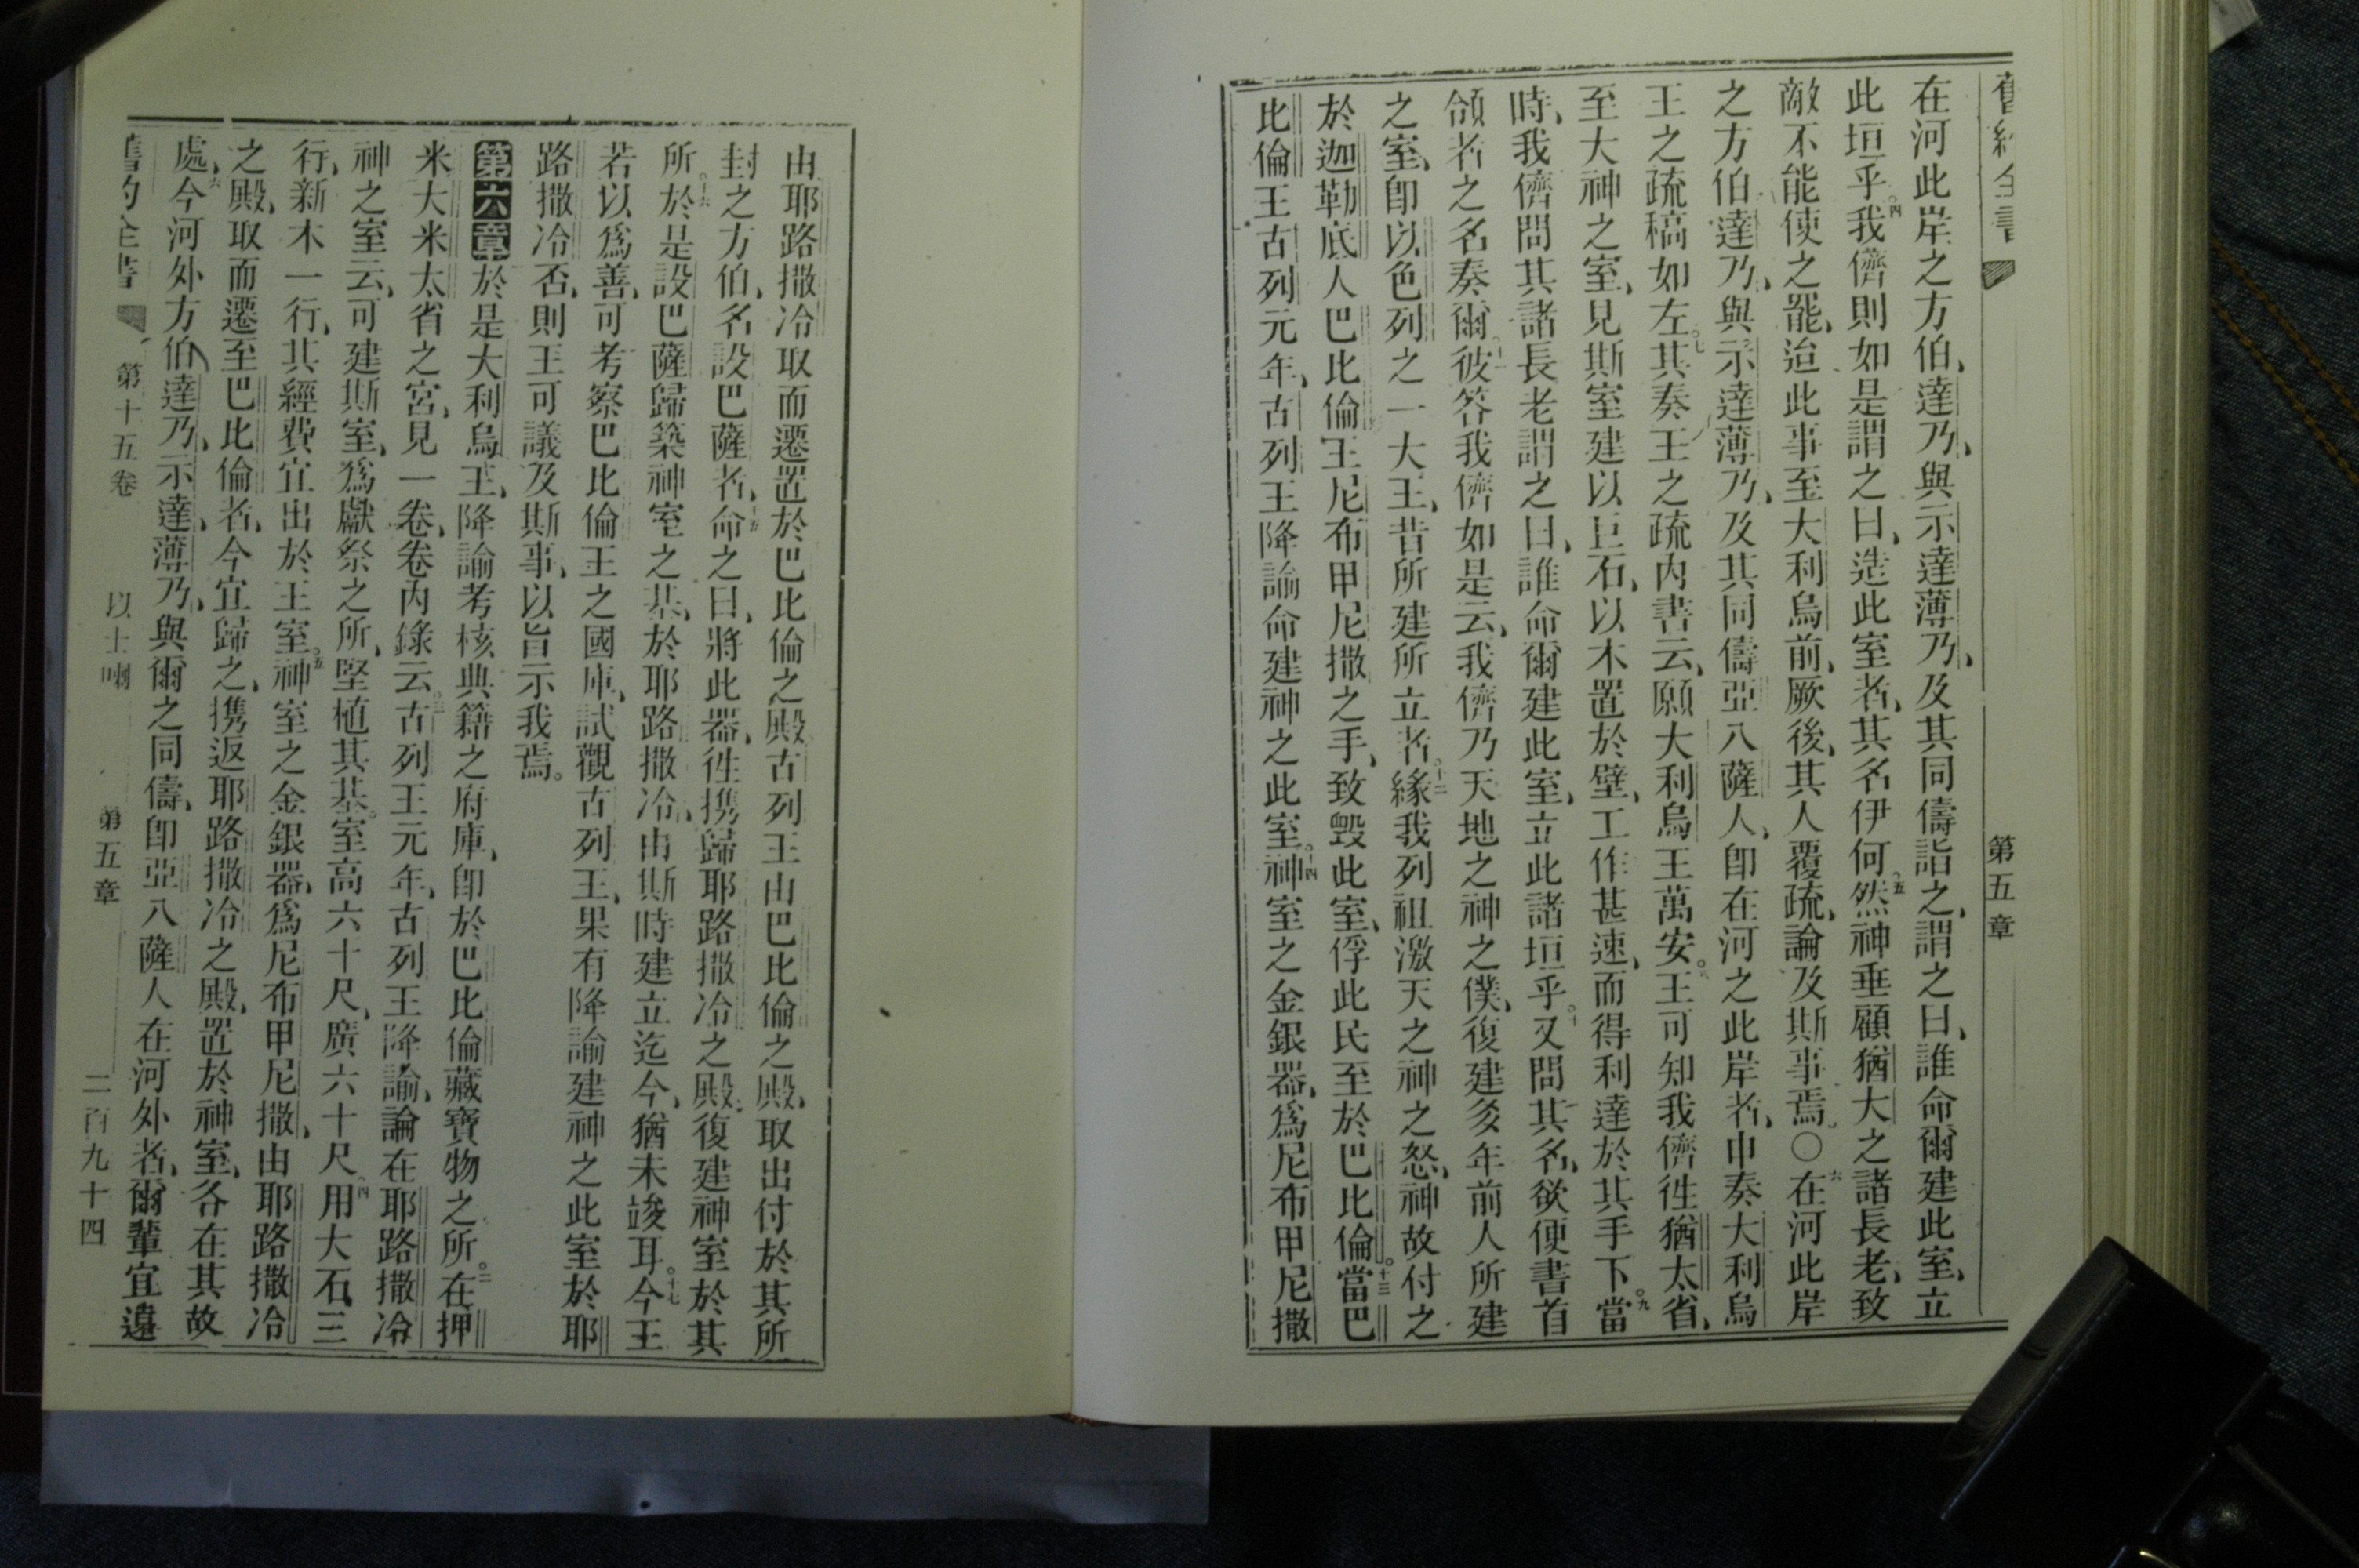 舊約全書 第五章
在河此岸之方伯、達乃、與示達薄乃、及其同儔詣之、謂之曰、誰命爾建此室、立
此垣乎。四我儕則如是謂之曰、造此室者、其名伊何。五然神垂顧猶大之諸長老、致
敵不能使之罷、迨此事至大利烏前、厥後、其人覆疏、論及斯事焉。〇六在河此岸
之方伯達乃、與示達薄乃、及其同儔亞八薩人、卽在河之此岸者、申奏大利烏
王之疏稿如左。七其奏王之疏內書云、願大利烏王萬安。八王可知我儕徃猶太省、
至大神之室、見斯室建以巨石、以木置於壁、工作甚速、而得利達於其手下。九當
時、我儕問其諸長老謂之曰、誰命爾建此室、立此諸垣乎。十又問其名、欲便書首
領者之名奏爾。十一彼答我儕如是云、我儕乃天地之神之僕、復建多年前人所建
之室、卽以色列之一大王、昔所建所立者。十二緣我列祖激天之神之怒、神故付之
於迦勒底人巴比倫王尼布甲尼撒之手、致毀此室、俘此民至於巴比倫。十三當巴
比倫王古列元年、古列王降諭命建神之此室。十四神室之金銀器、爲尼布甲尼撒
由耶路撒冷取而遷置於巴比倫之殿、古列王由巴比倫之殿、取出付於其所
封之方伯、名設巴薩者、十五命之曰、將此器、徃携歸耶路撒冷之殿、復建神室於其
所。十六於是設巴薩歸築神室之基、於耶路撒冷、由斯時建立迄今、猶未竣耳。十七今王
若以爲善、可考察巴比倫王之國庫、試觀古列王、果有降諭建神之此室於耶
路撒冷否、則王可議及斯事、以旨示我焉。
第六章於是大利烏王、降諭考核典籍之府庫、卽於巴比倫藏寶物之所。二在押
米大米太省之宮、見一卷、卷內錄云。三古列王元年、古列王降諭、論在耶路撒冷
神之室云、可建斯室、爲獻祭之所、堅植其基。室高六十尺、廣六十尺、四用大石三
行、新木一行、其經費宜出於王室。五神室之金銀器、爲尼布甲尼撒、由耶路撒冷
之殿、取而遷至巴比倫者、今宜歸之、携返耶路撒冷之殿、置於神室、各在其故
處、六今河外方伯達乃、示達、薄乃、與爾之同儔、卽亞八薩人在河外者、爾輩宜遠
舊約全書 第十五卷 以士喇 第五章 二百九十四